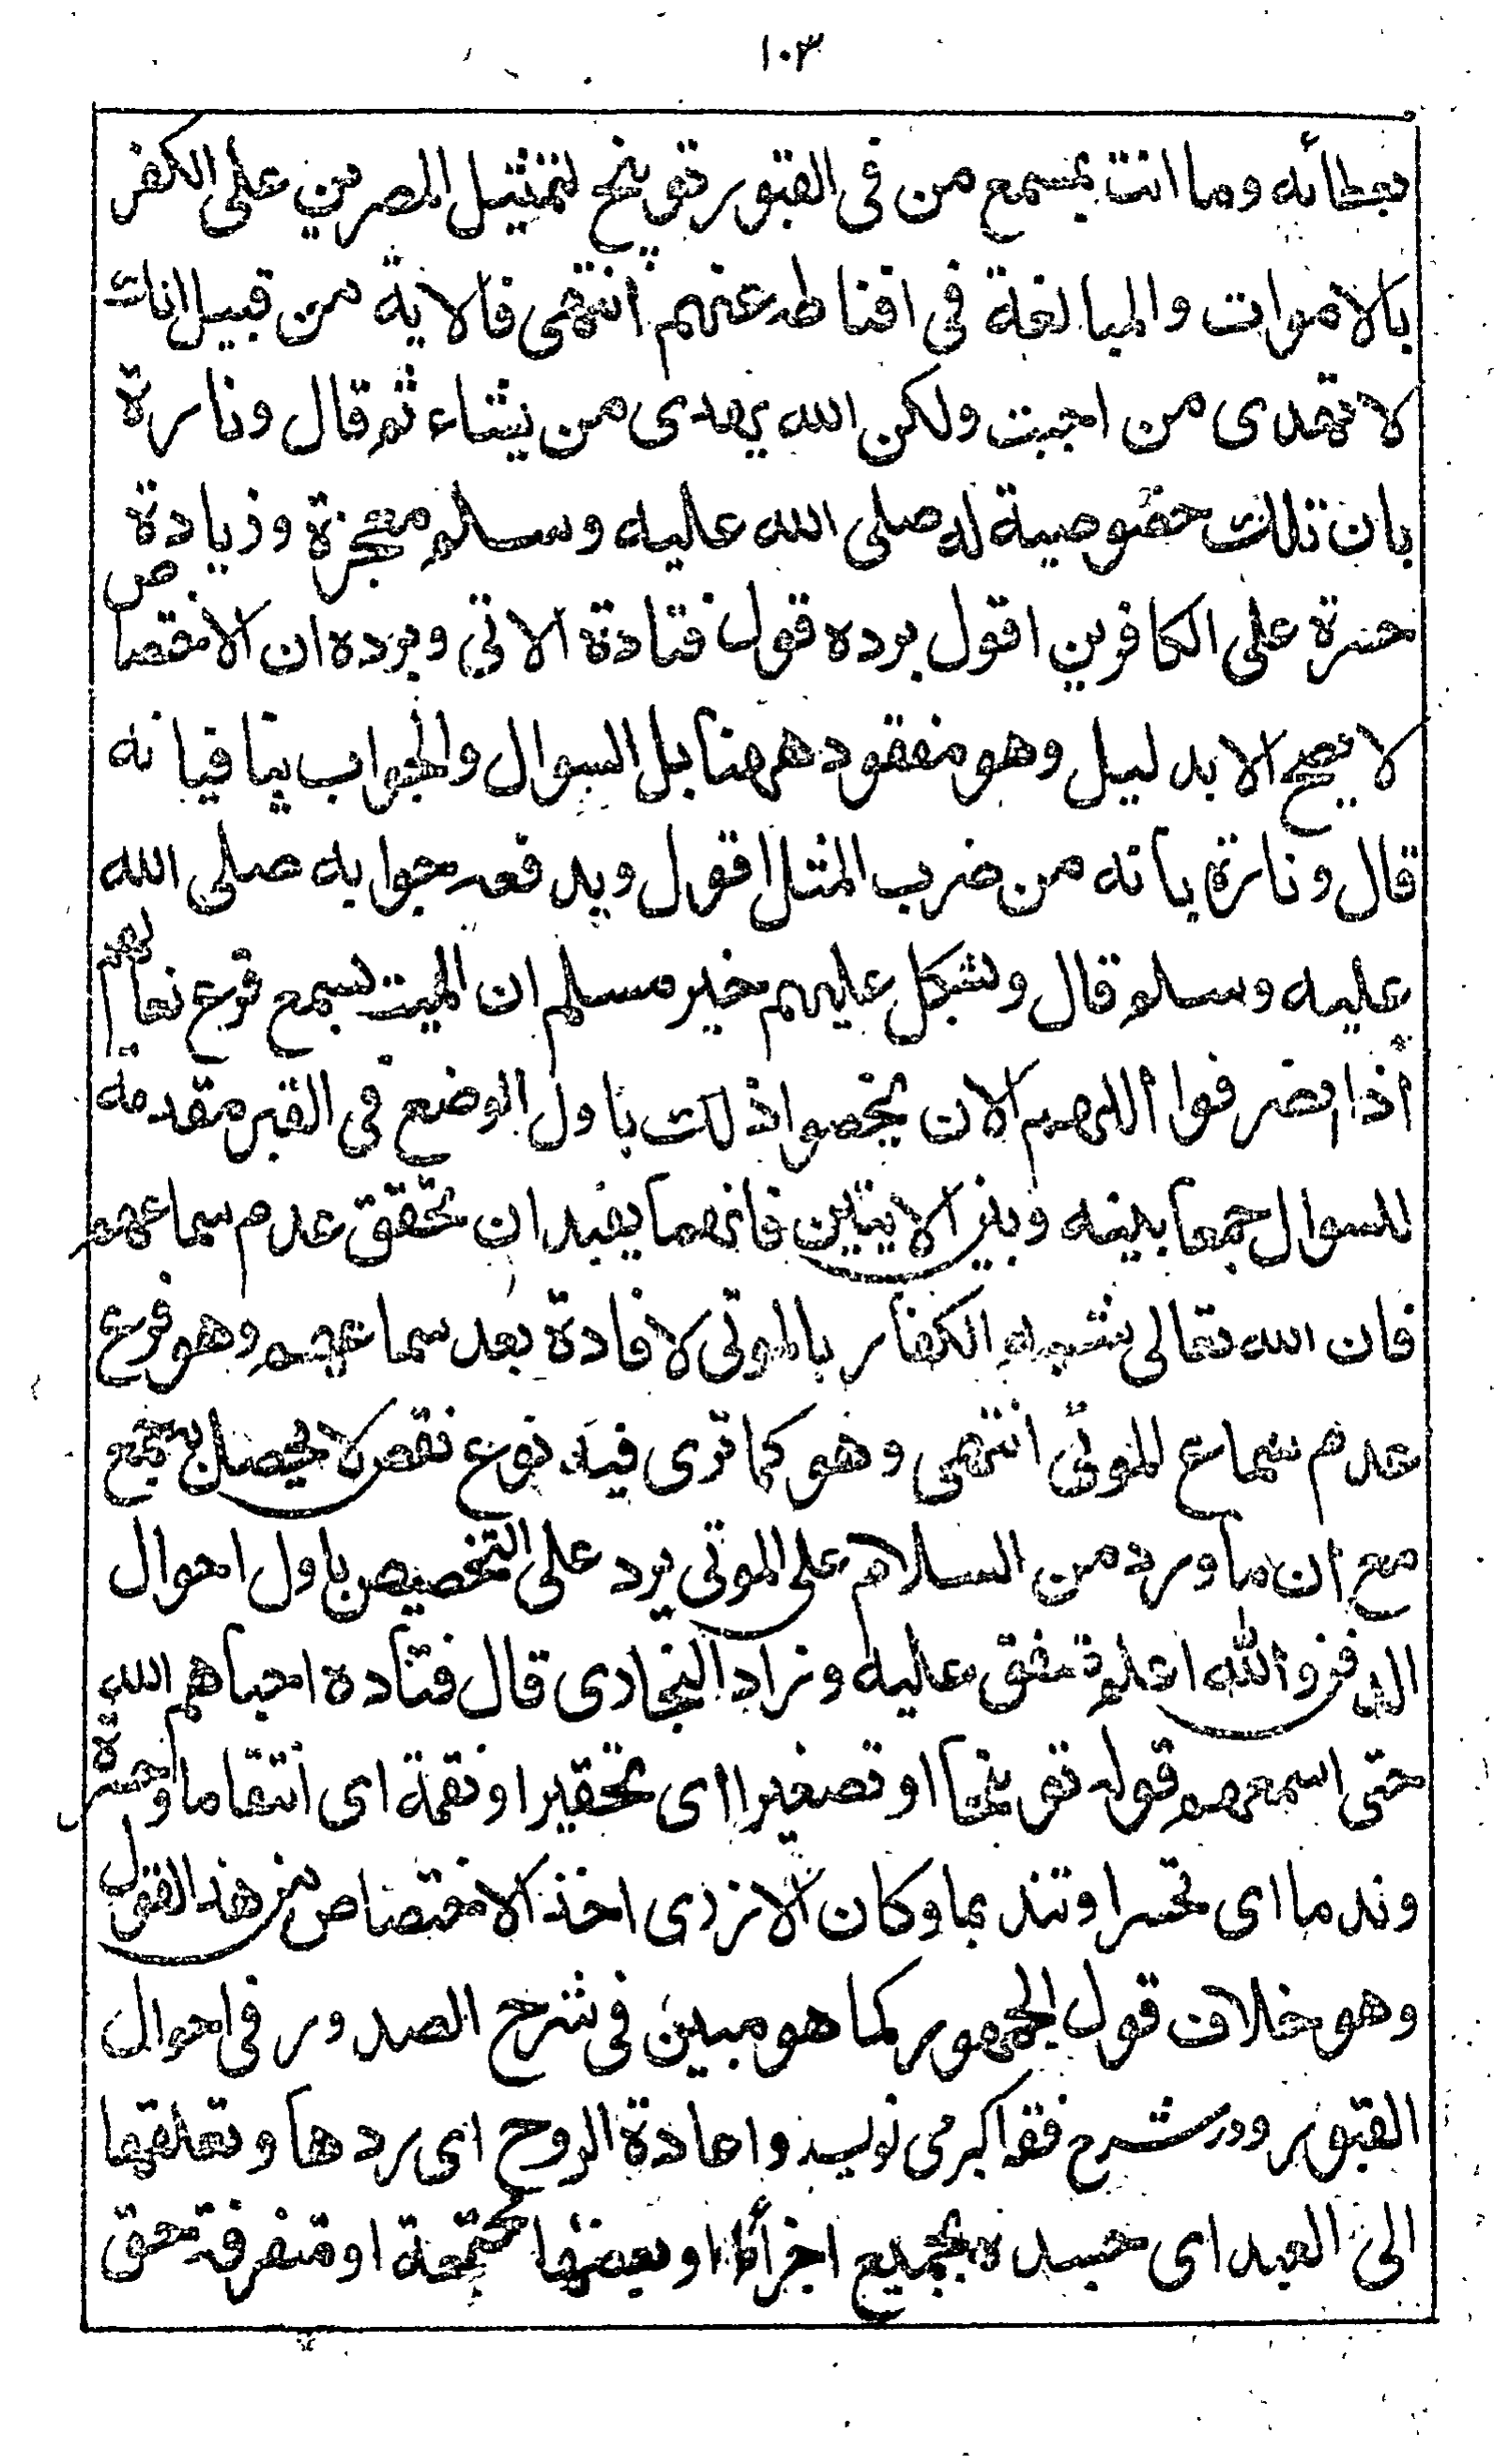 ١٠٣
بعطائه وما انت بمسمع من فى القبور توبيخ لتمثيل المصرين على الكفر
بالاموات والمبالغة فى اقناطه عنهم انتهى فالاية من قبيل انك
لا تهدى من احببت ولكن الله يهدى من يشاء ثم قال وتارة
بان تلك خصوصية له صلى الله عليه وسلم معجزة وزيادة
حسرة على الكافرين اقول يرده قول قتادة الاتى ويرده ان الاختصاص
لا يصح الا بدليل وهو مفقود ههنا بل السوال والجواب ينافيانه
قال وتارة بانه من ضرب المثل اقول ويدفعه جوابه صلى الله
عليه وسلم قال ويشكل عليهم خبر مسلم ان الميت يسمع قرع نعالهم
اذا انصرفوا اللهم الا ان يخصوا ذلك باول الوضع فى القبر مقدمة
للسوال جمعا بينه وبين الايتين فانهما يفيدان تحقق عدم سماعهم
فان الله تعالى شبه الكفار بالموتى لافادة بعد سماعهم وهو فرع
عدم سماع الموتى انتهى وهو كما ترى فيه نوع نقص لا يحصل به جمع
مع ان ما ورد من السلام على الموتى يرد على التخصيص باول احوال
الدفن والله اعلم متفق عليه وزاد البخارى قال قتاده احياهم الله
حتى اسمعهم قوله توبيخا او تصغيرا اى تحقيرا ونقمة اى انتقاما وحسرة
وندما اى تحسرا وتندما وكان الازدى اخذ الاختصاص من هذا القول
وهو خلاف قول الجمهور كما هو مبين فى شرح الصدور فى احوال
القبور ودر شرح فقه اكبر مى نويسد واعادة الروح اى ردها وتعلقها
الى العبد اى جسده بجميع اجزائه او بعضها مجتمعة او متفرقة حق